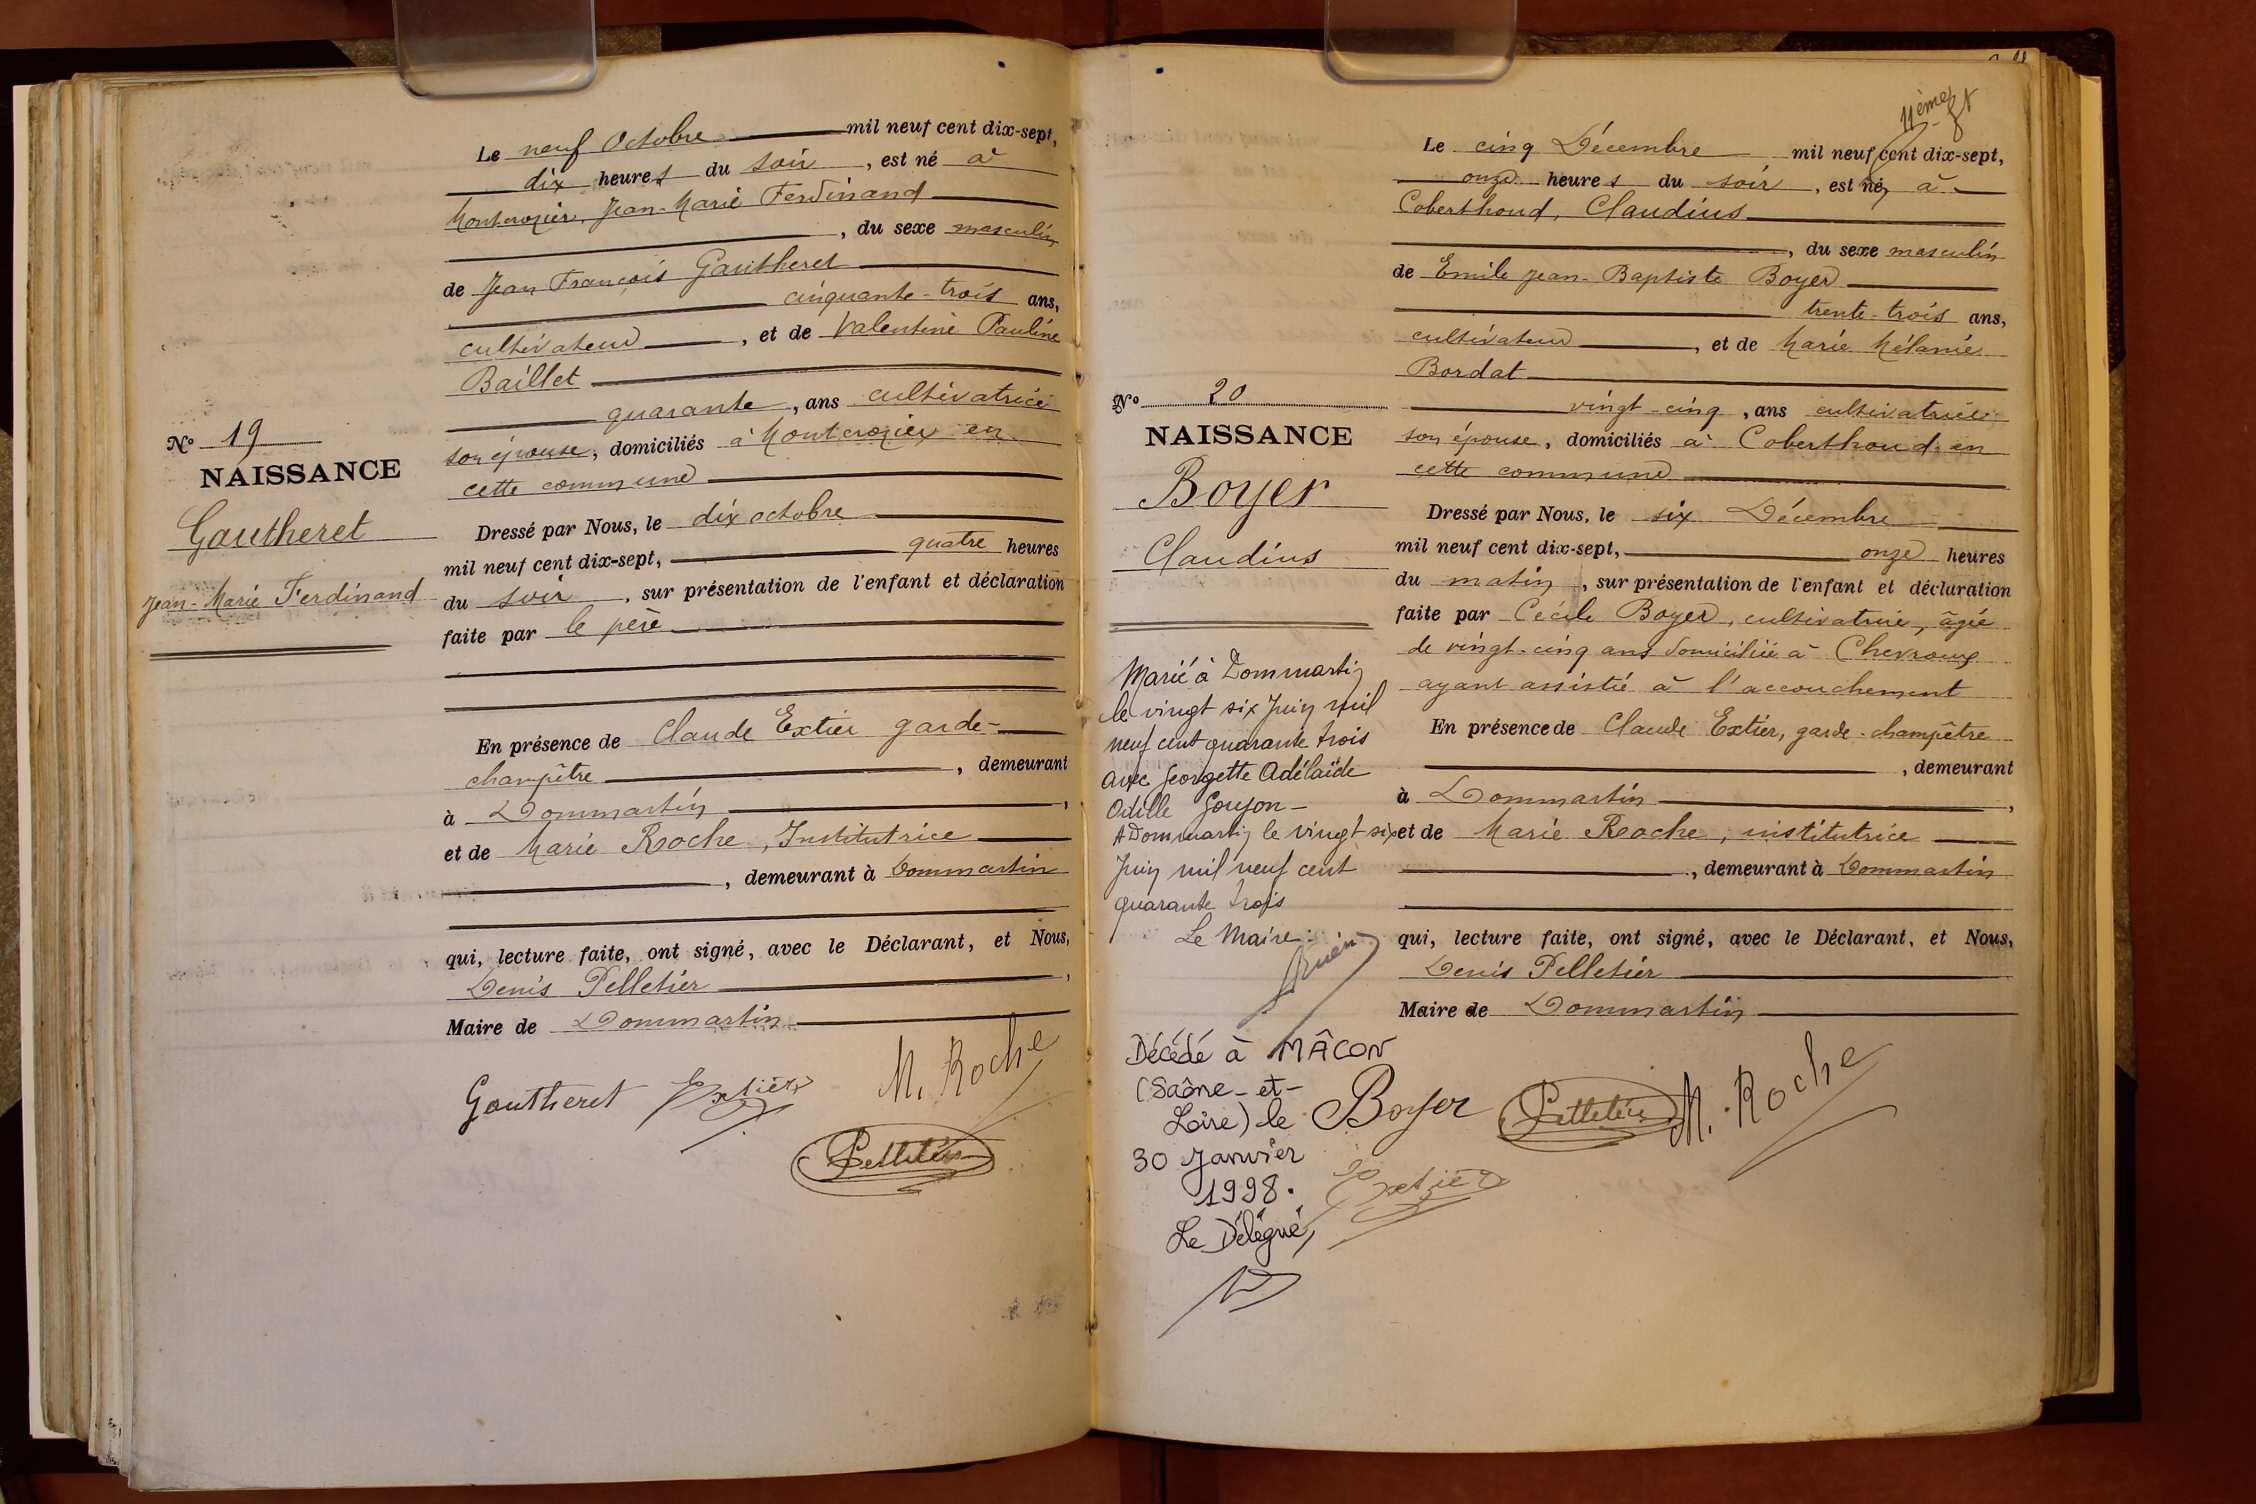 Le neuf Octobre mil neuf cent dix-sept,
dix heures du soir, est né à
Montcrozier, Jean-Marie Ferdinand
, du sexe masculin
de Jean François Gautheret
cinquante-trois ans,
cultivateur, et de Valentine Pauline
Baillet
quarante, ans cultivatrice
son épouse, domiciliés à Montcrozier en
cette commune
Dressé par Nous, le dix octobre
mil neuf cent dix-sept, quatre heures
du soir, sur présentation de l'enfant et déclaration
faite par le père
En présence de Claude Extier garde-
champêtre, demeurant
à Dommartin,
et de Marie Roche, Institutrice
, demeurant à Dommartin
qui, lecture faite, ont signé, avec le Déclarant, et Nous,
Denis Pelletier,
Maire de Dommartin
Gautheret Extier M. Roche
Pelletier
N° 19
NAISSANCE
Gautheret
Jean-Marie Ferdinand
11ème
Le cinq Décembre mil neuf cent dix-sept,
onze heures du soir, est né, à
Coberthoud, Claudius
, du sexe masculin
de Emile Jean-Baptiste Boyer
trente-trois ans,
cultivateur, et de Marie Mélanie
Bordat
vingt-cinq, ans cultivatrice
son épouse, domiciliés à Coberthoud en
cette commune
Dressé par Nous, le six Décembre
mil neuf cent dix-sept, onze heures
du matin, sur présentation de l'enfant et déclaration
faite par Cécile Boyer, cultivatrice, âgée
de vingt-cinq ans domiciliée à Chevroux
ayant assistée à l'accouchement
En présence de Claude Extier, garde-champêtre
, demeurant
à Dommartin,
et de Marie Roche, institutrice
, demeurant à Dommartin
qui, lecture faite, ont signé, avec le Déclarant, et Nous,
Denis Pelletier
Maire de Dommartin
Boyer Pelletier M. Roche
Extier
N° 20
NAISSANCE
Boyer
Claudius
Marié à Dommartin
le vingt six Juin mil
neuf cent quarante trois
avec Georgette Adélaïde
Odille Goujon -
A Dommartin le vingt six
Juin mil neuf cent
quarante trois
Le Maire:
Décédé à MÂCON
(Saône-et-
Loire) le
30 Janvier
1998.
Le Délégué,